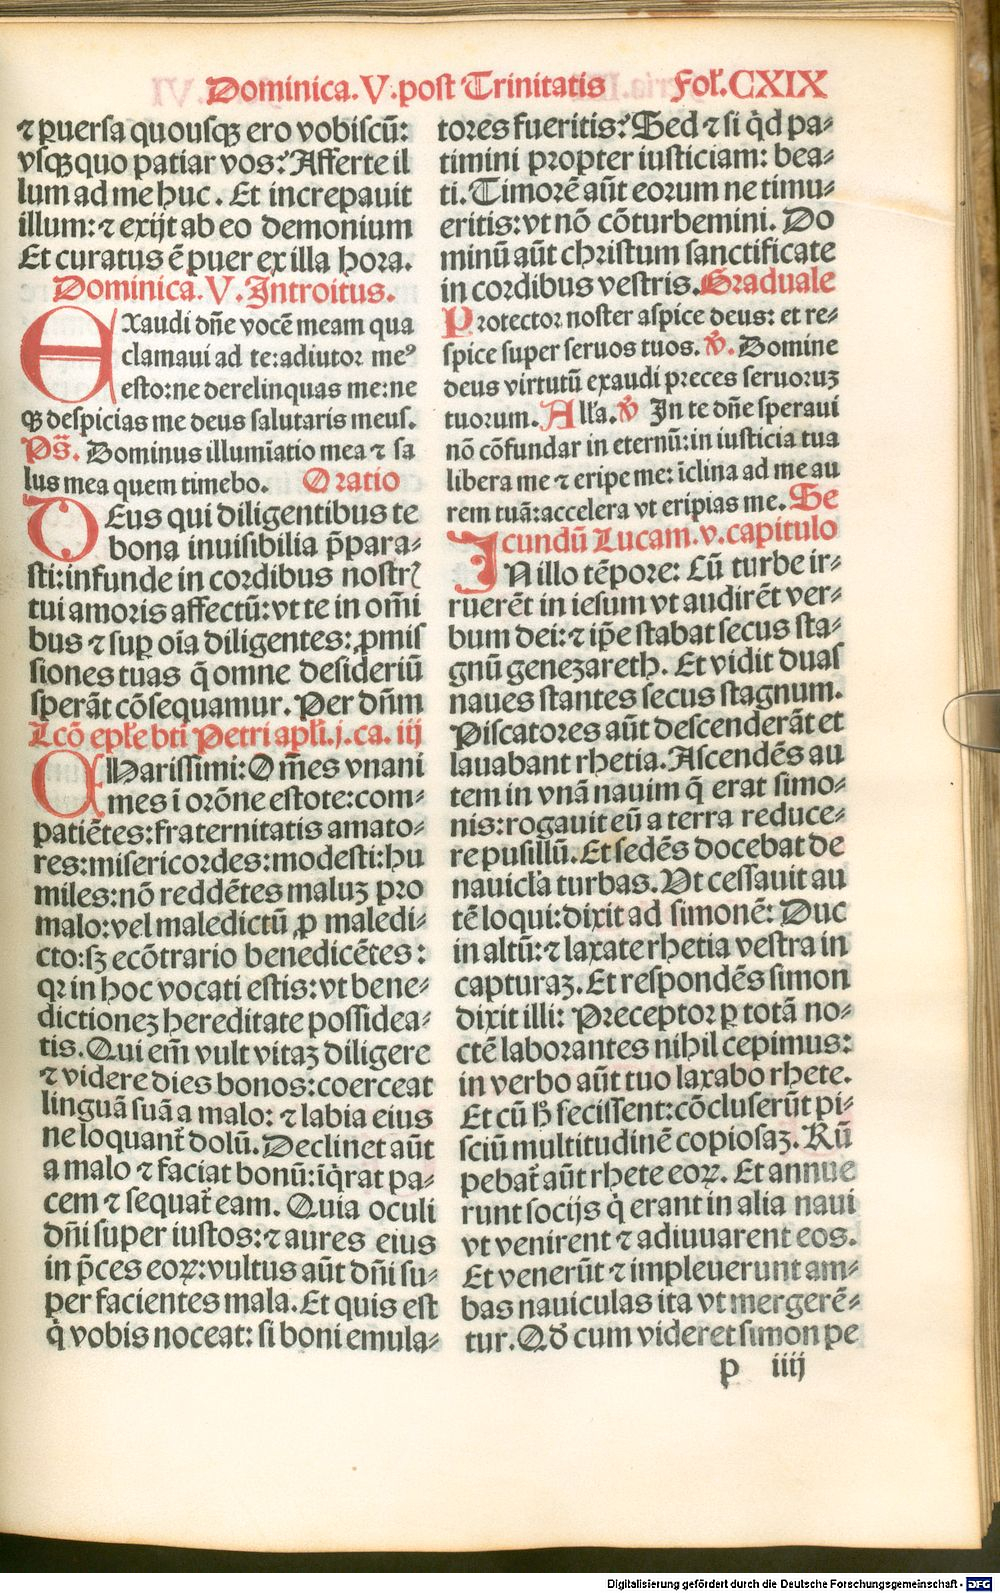 Dominica. V. post Trinitatis Fol. CXIX
⁊ puersa quousqꝫ ero vobiscū:
vsqꝫ quo patiar vos? Afferte il
lum ad me huc. Et increpauit
illum: ⁊ exijt ab eo demonium
Et curatus ē puer ex illa hora.
Dominica. V. Introitus.
Exaudi dn̄e vocē meam qua
clamaui ad te: adiutor meꝰ
esto: ne derelinquas me: ne
qꝫ despicias me deus salutaris meus.
Ps̄. Dominus illumīatio mea ⁊ sa
lus mea quem timebo. Oratio
DEus qui diligentibus te
bona inuisibilia p̄para⸗
sti: infunde in cordibus nostrꝭ
tui amoris affectū: vt te in om̄i
bus ⁊ suꝑ oīa diligentes: ꝓmis
siones tuas q̄ omne desideriū
sperāt cōsequamur. Per dn̄m
Lcō epłe bt̄i Petri apłi. j. ca. iij
CHarissimi: Om̄es vnani
mes ī orōne estote: com⸗
patiētes: fraternitatis amato⸗
res: misericordes: modesti: hu
miles: nō reddētes maluꝫ pro
malo: vel maledictū ꝓ maledi⸗
cto: sꝫ ecōtrario benedicētes:
qꝛ in hoc vocati estis: vt bene⸗
dictioneꝫ hereditate possidea⸗
tis. Qui em̄ vult vitaꝫ diligere
⁊ videre dies bonos: coerceat
linguā suā a malo: ⁊ labia eius
ne loquant̄ dolū. Declinet aūt
a malo ⁊ faciat bonū: īq̇rat pa⸗
cem ⁊ sequat̄ eam. Quia oculi
dn̄i super iustos: ⁊ aures eius
in p̄ces eoꝝ: vultus aūt dn̄i su⸗
per facientes mala. Et quis est
q̇ vobis noceat: si boni emula⸗
tores fueritis? Sed ⁊ si q̇d pa⸗
timini propter iusticiam: bea⸗
ti. Timorē aūt eorum ne timu⸗
eritis: vt nō cōturbemini. Do
minū aūt christum sanctificate
in cordibus vestris. Graduale
Protector noster aspice deus: et re⸗
spice super seruos tuos. ℣. Domine
deus virtutū exaudi preces seruoruꝫ
tuorum. Alla. ℣ In te dn̄e speraui
nō cōfundar in eternū: in iusticia tua
libera me ⁊ eripe me: īclina ad me au
rem tuā: accelera vt eripias me. Se
cundū Lucam. v. capitulo
IN illo tēpore: Cū turbe ir⸗
ruerēt in iesum vt audirēt ver⸗
bum dei: ⁊ ip̄e stabat secus sta⸗
gnū genezareth. Et vidit duas
naues stantes secus stagnum.
Piscatores aūt descenderāt et
lauabant rhetia. Ascendēs au
tem in vnā nauim q̄ erat simo⸗
nis: rogauit eū a terra reduce⸗
re pusillū. Et sedēs docebat de
nauicła turbas. Ut cessauit au
tē loqui: dixit ad simonē: Duc
in altū: ⁊ laxate rhetia vestra in
capturaꝫ. Et respondēs simon
dixit illi: Preceptor ꝑ totā no⸗
ctē laborantes nihil cepimus:
in verbo aūt tuo laxabo rhete.
Et cū h̄ fecissent: cōcluserūt pi⸗
sciū multitudinē copiosaꝫ. Rū
pebat̄ aūt rhete eoꝝ. Et annue
runt socijs q̇ erant in alia naui
vt venirent ⁊ adiuuarent eos.
Et venerūt ⁊ impleuerunt am⸗
bas nauiculas ita vt mergerē⸗
tur. Qd̄ cum videret simon pe
p iiij
Digitalisierung gefördert durch die Deutsche Forschungsgemeinschaft - DFG